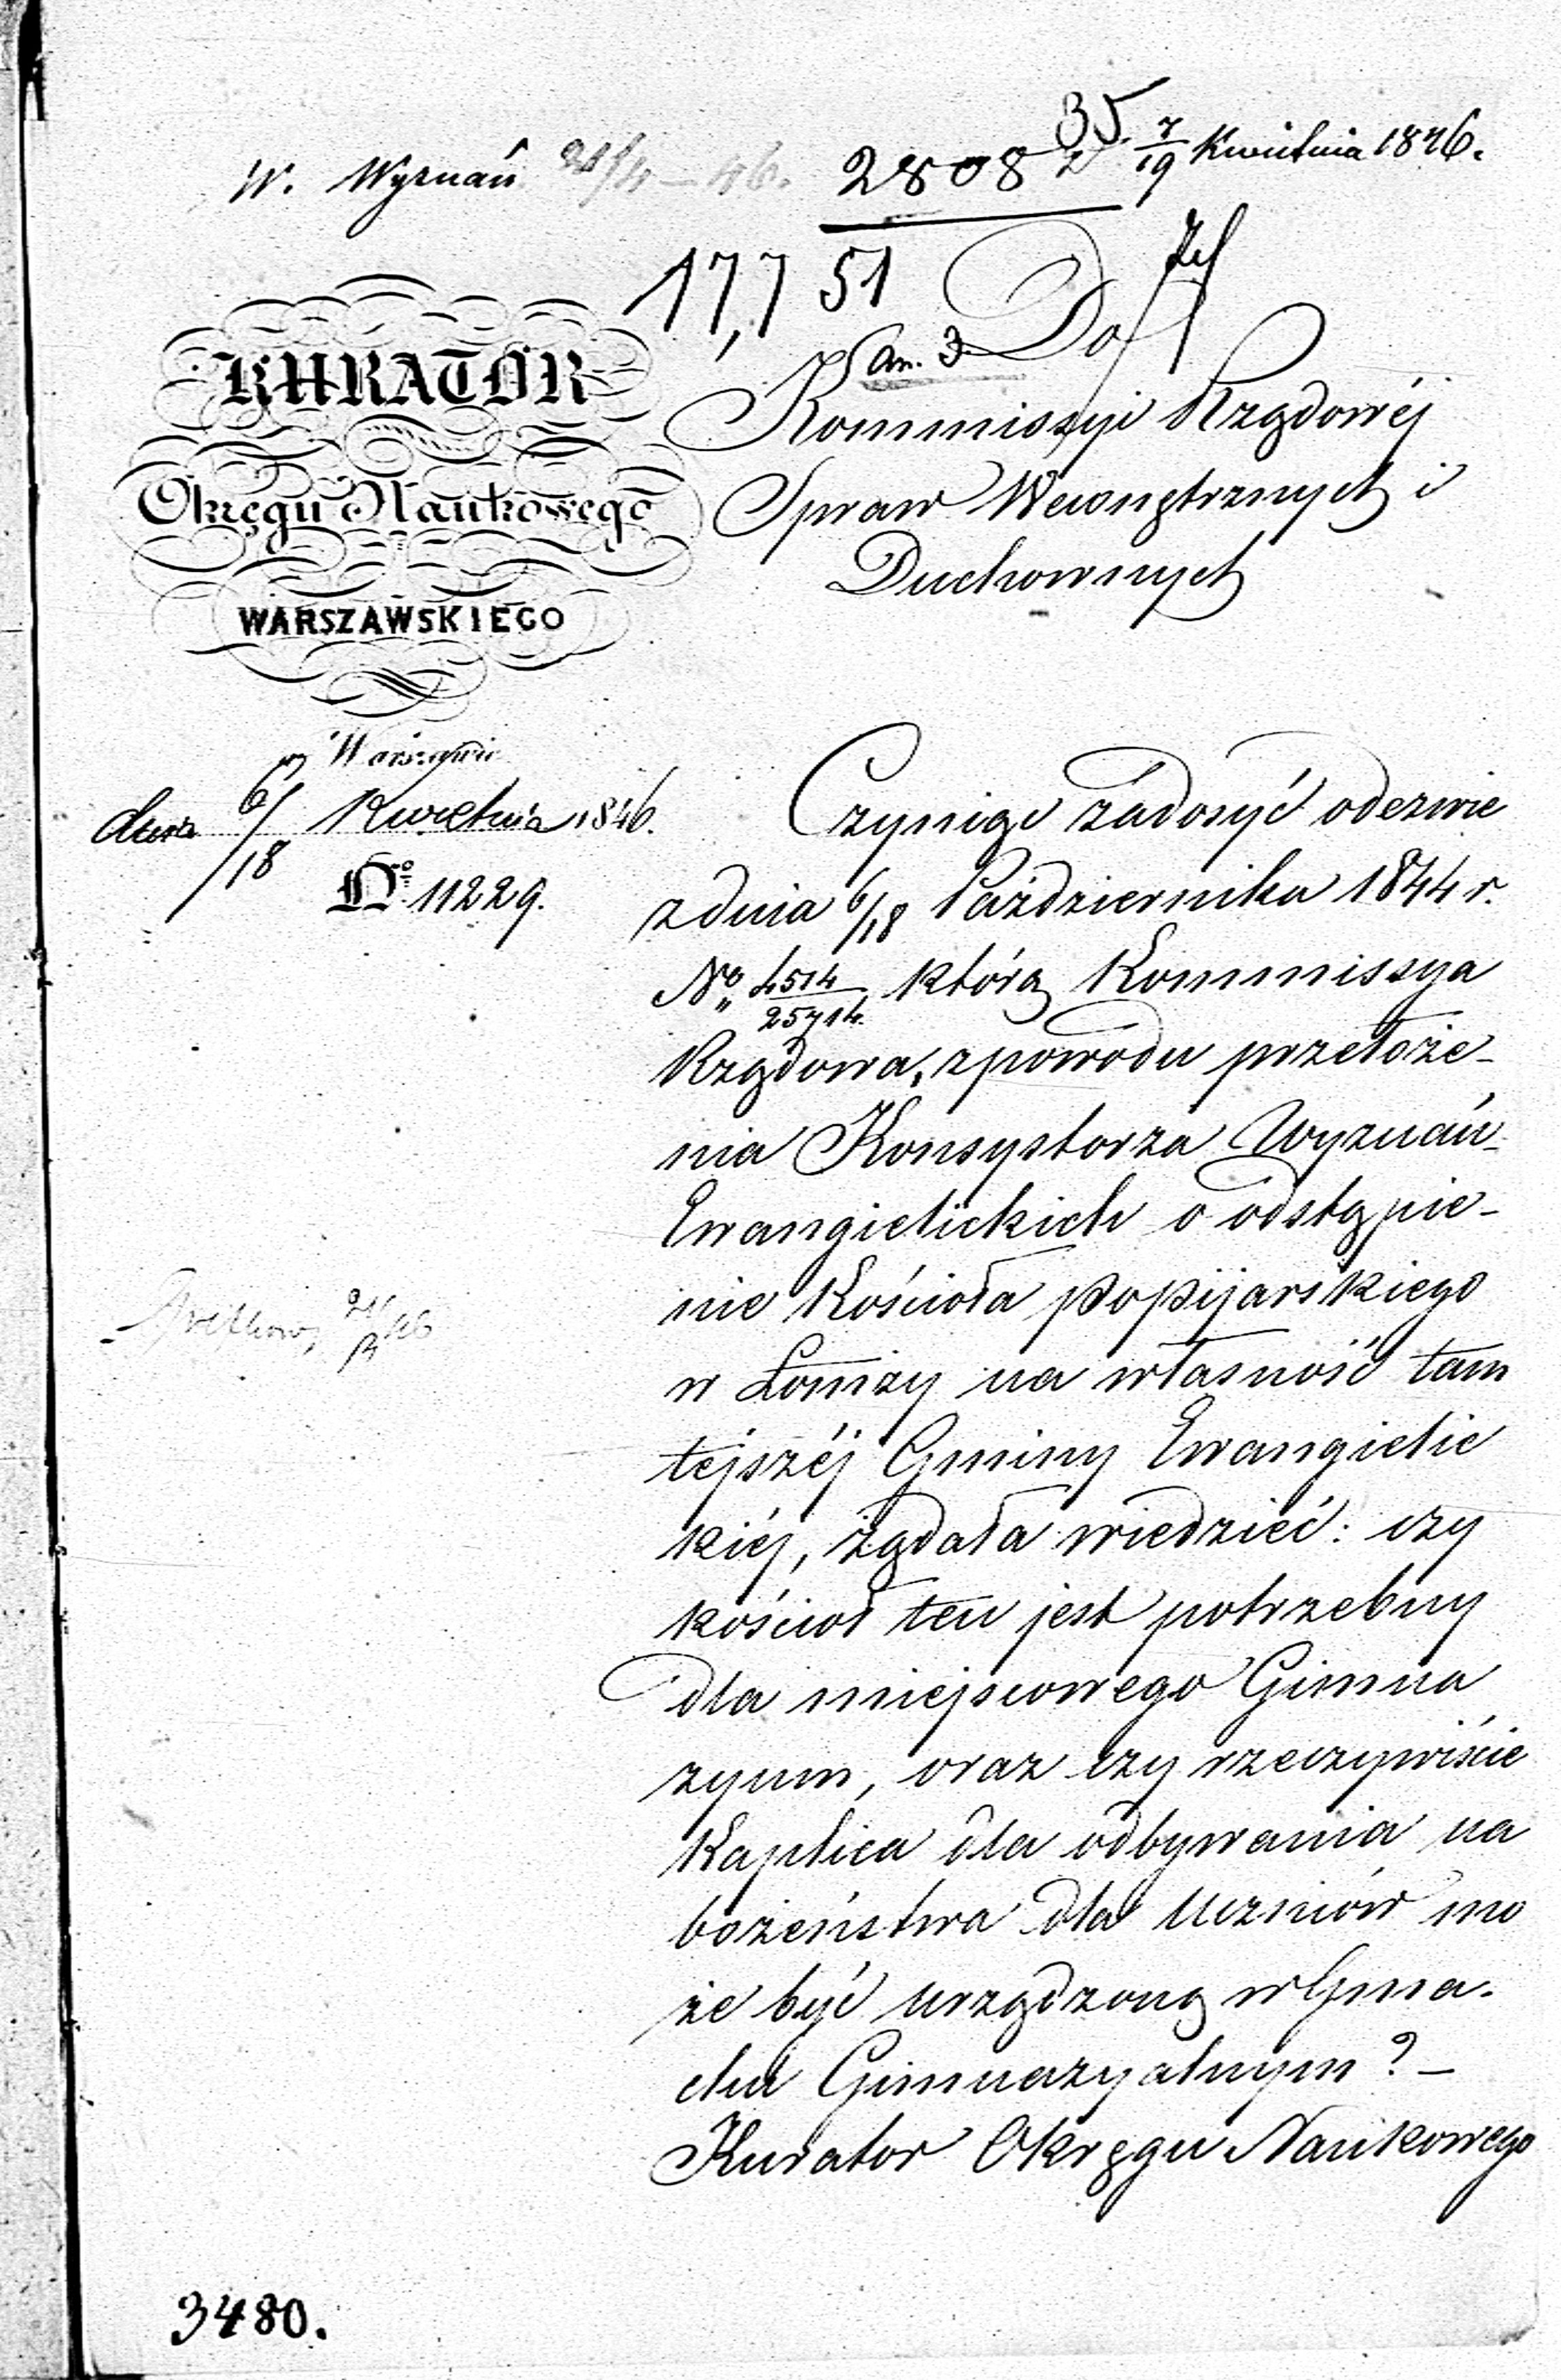 35.
W. Wyznań 21/4 – 46. 2808 z 7/19 Kwietnia 1846.
17,751
Do
KURATOR
Okręgu Naukowego
WARSZAWSKIEGO
Kommissyi Rządowéj
Spraw Wewnętrznych i
Duchownych
w Warszawie
dnia 6/18 Kwietnia 1846.
No. 11229.
Czyniąc zadosyć odezwie
z dnia 6/18 Października 1844 r.
No. 4514/25714. którą Kommissya
Rządowa, z powodu przełoże-
nia Konsystorza Wyznań
Ewangielickich o odstąpie-
nie Kościoła popijarskiego
w Łomży na własność tam
tejszéj Gminy Ewangielic
kiéj, żądała wiedzieć: czy
kościoł ten jest potrzebny
dla miejscowego Gimna
zyum, oraz czy rzeczywiście
Kaplica dla odbywania na
bożeństwa dla Uczniów mo
że być urządzoną w Gma-
chu Gimnazyalnym? –
Kurator Okręgu Naukowego
3480.